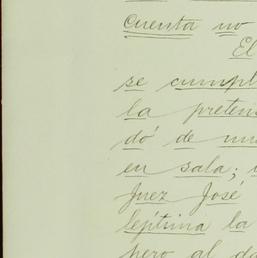 Cuenta no
El
se cumpl
la preten
dó de mu
en sala;
Juez José
legítima la
pero al da